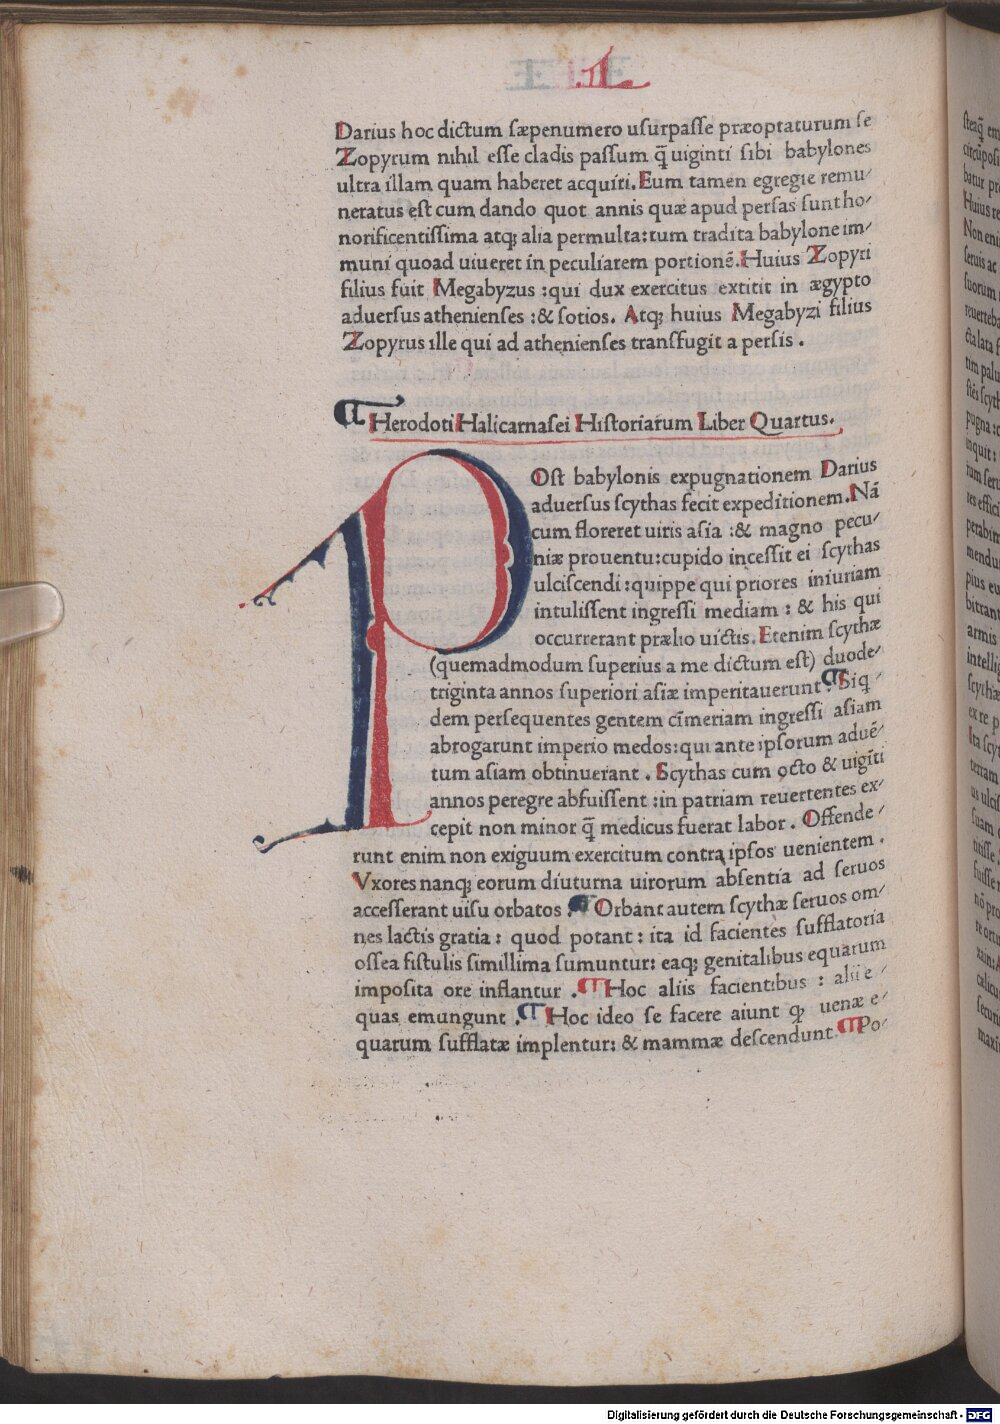 .L.
Darius hoc dictum sæpenumero uſurpaſſe præoptaturum ſe
Zopyrum nihil eſſe cladis paſſum q̄ uiginti ſibi babylones
ultra illam quam haberet acquiri. Eum tamen egregie remu⸗
neratus eſt cum dando quot annis quæ apud perſas ſunt ho⸗
norificentiſſima atq; alia permulta: tum tradita babylone im⸗
muni quoad uiueret in peculiarem portionē. Huius Zopyri
filius fuit Megabyzus : qui dux exercitus extitit in ægypto
aduerſus athenienſes : & ſotios. Atq; huius Megabyzi filius
Zopyrus ille qui ad athenienſes tranſfugit a perſis .
¶ Herodoti Halicarnaſei Hiſtoriarum Liber Quartus.
POſt babylonis expugnationem Darius
aduerſus ſcythas fecit expeditionem. Nã
cum floreret uiris aſia : & magno pecu⸗
niæ prouentu: cupido inceſſit ei ſcythas
ulciſcendi : quippe qui priores iniuriam
intuliſſent ingreſſi mediam : & his qui
occurrerant prælio uictis. Etenim ſcythæ
(quemadmodum ſuperius a me dictum eſt) duode⸗
triginta annos ſuperiori aſiæ imperitauerunt. ¶ Siq⸗
dem perſequentes gentem cīmeriam ingreſſi aſiam
abrogarunt imperio medos: qui ante ipſorum aduē⸗
tum aſiam obtinuerant . Scythas cum octo & uigīti
annos peregre abfuiſſent : in patriam reuertentes ex⸗
cepit non minor q̄ medicus fuerat labor . Offende⸗
runt enim non exiguum exercitum contra ipſos uenientem .
Vxores nanq; eorum diuturna uirorum abſentia ad ſeruos
acceſſerant uiſu orbatos . ¶ Orbant autem ſcythæ ſeruos om⸗
nes lactis gratia : quod potant : ita id facientes ſufflatoria
oſſea fiſtulis ſimillima ſumuntur: eaq; genitalibus equarum
impoſita ore inflantur . ¶ Hoc aliis facientibus : alii e⸗
quas emungunt . ¶ Hoc ideo ſe facere aiunt ꝙ uenæ e⸗
quarum ſufflatæ implentur: & mammæ deſcendunt. ¶ Po⸗
Digitalisierung gefördert durch die Deutsche Forschungsgemeinschaft - DFG